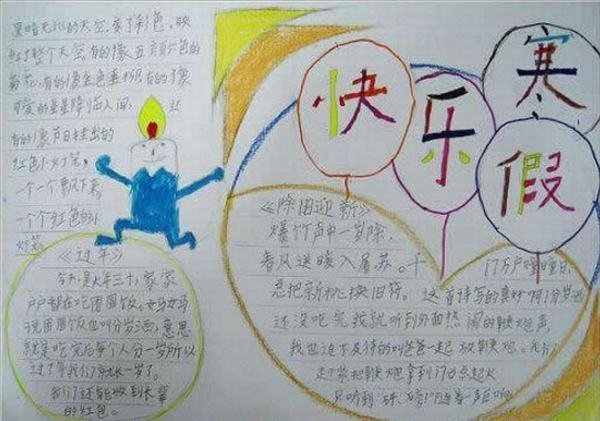 黑暗无比的天空,变了彩色,映
红了整个天空有的像五颜六色的
菊花,有的像金色垂柳有的像
可爱的星星降临人间,还
有的像节日挂出的
红色小灯笼,
一个一个飘下来
一个个红色的小
灯笼
快乐寒假
《过年》
今天是大年三十,家家
户户都在吃团圆饭。妈妈
说团圆饭也叫分岁酒,意思
就是吃完后每个人分一岁所以
过了年我们年长一岁了。
我们还能收到长辈
的红包。
《除旧迎新》
爆竹声中一岁除,
春风送暖入屠苏。千
门万户曈曈日,
总把新桃换旧符。这首诗写的真好啊!分岁酒
还没吃完我就听到外面热闹的鞭炮声,
我也迫不及待的叫爸爸一起放鞭炮。我们
赶紧把鞭炮拿到门口点起火
只听到“砰,磅”随着一声巨响